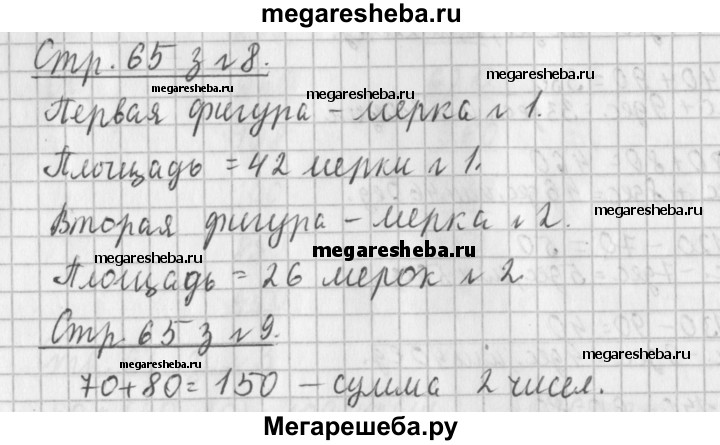 megaresheba.ru
Стр. 65 з №8.
megaresheba.ru
megaresheba.ru
megaresheba.ru
Первая фигура – мерка №1.
megaresheba.ru
Площадь = 42 мерки №1.
Вторая фигура – мерка №2.
megaresheba.ru
megaresheba.ru
megaresheba.ru
Площадь = 26 мерок №2
Стр. 65 з №9.
megaresheba.ru
megaresheba.ru
megaresheba.ru
70+80=150 – сумма 2 чисел.
Мегарешеба.ру